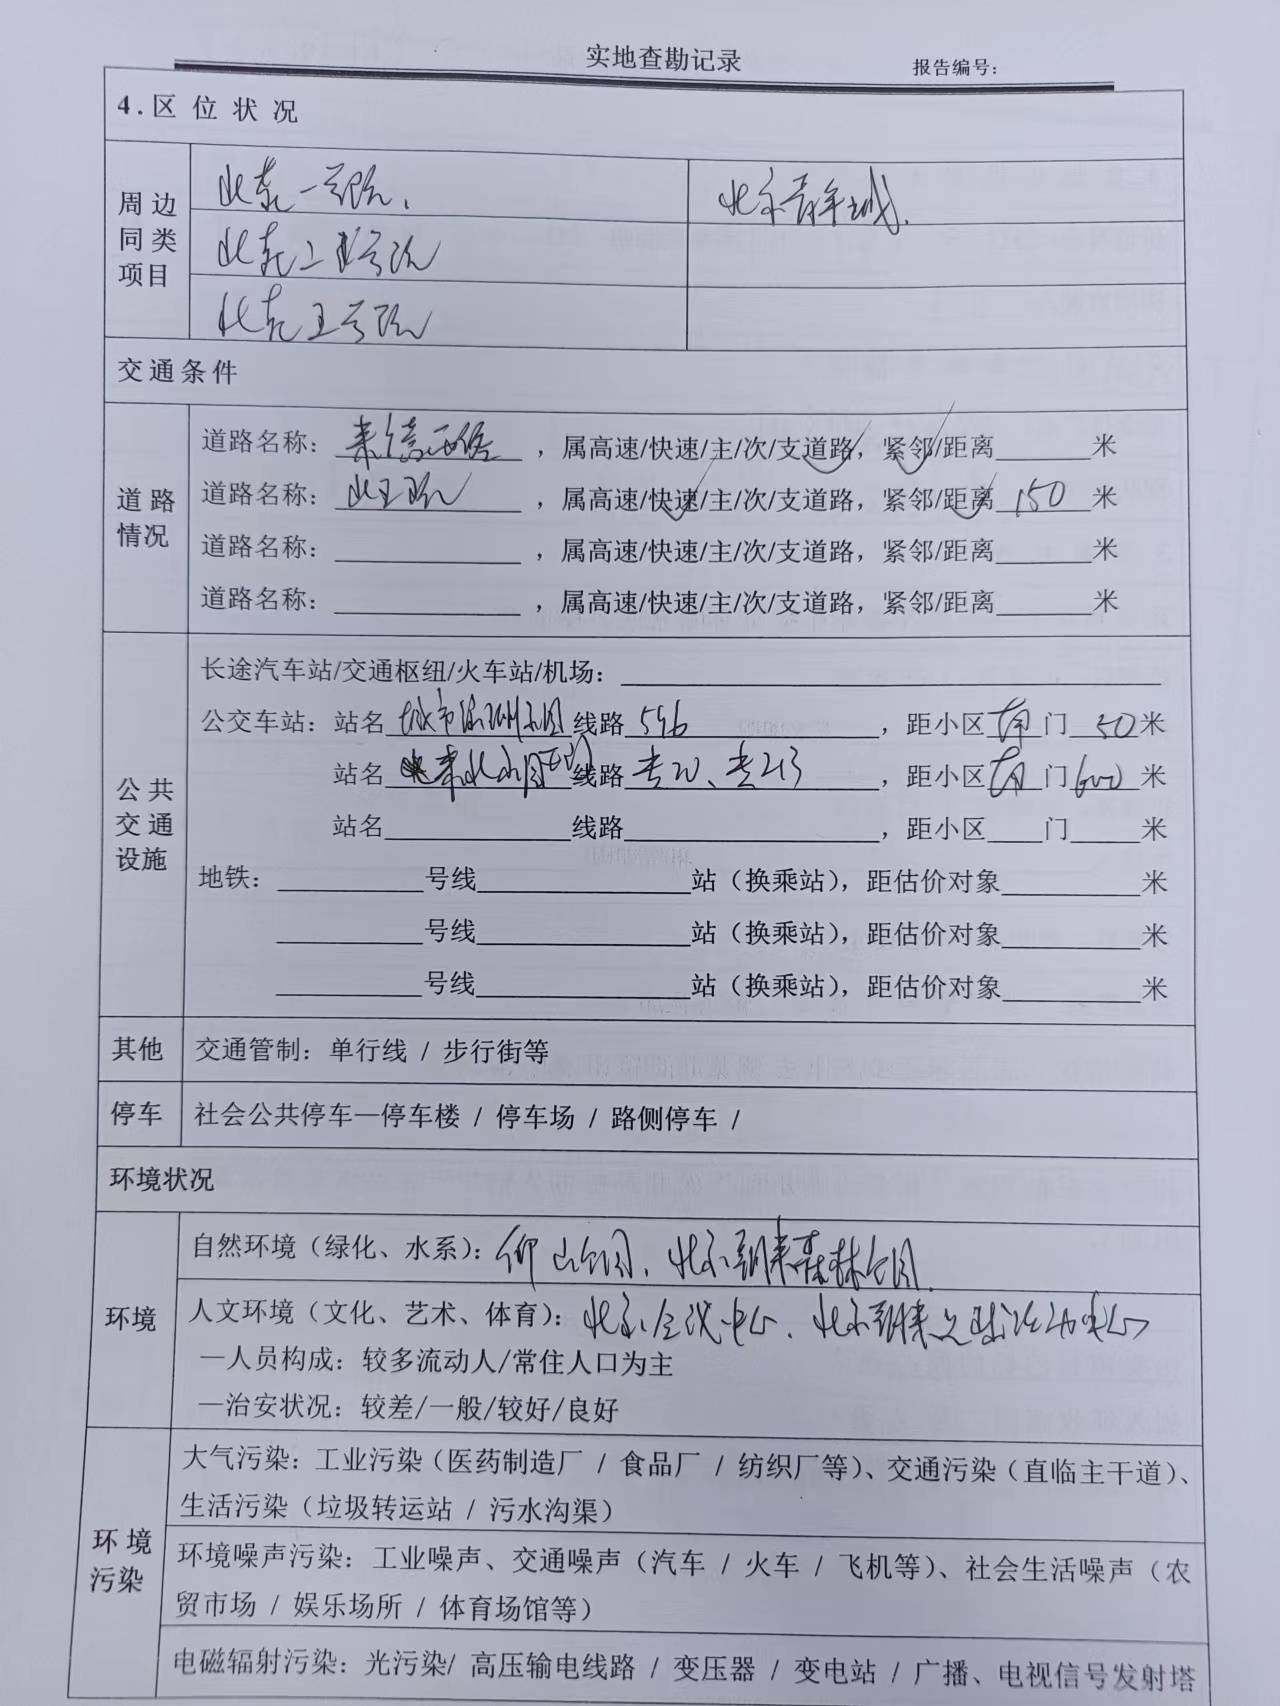 实地查勘记录
报告编号：
4.区位状况
周边同类项目
北苑一号院、
北京青年城.
北苑二号院
北苑三号院
交通条件
道路情况
道路名称：来广营西路，属高速/快速/主/次/支道路，紧邻/距离 米
道路名称：北五环，属高速/快速/主/次/支道路，紧邻/距离150米
道路名称： ，属高速/快速/主/次/支道路，紧邻/距离 米
道路名称： ，属高速/快速/主/次/支道路，紧邻/距离 米
公共交通设施
长途汽车站/交通枢纽/火车站/机场：
公交车站：站名 线路596，距小区南门50米
站名 线路专20、专213，距小区南门600米
站名 线路 ，距小区 门 米
地铁： 号线 站（换乘站），距估价对象 米
号线 站（换乘站），距估价对象 米
号线 站（换乘站），距估价对象 米
其他 交通管制：单行线 / 步行街等
停车 社会公共停车—停车楼 / 停车场 / 路侧停车 /
环境状况
环境
自然环境（绿化、水系）：仰山公园、北京朝来森林公园.
人文环境（文化、艺术、体育）：北京会议中心、北京朝来足球活动中心
—人员构成：较多流动人/常住人口为主
—治安状况：较差/一般/较好/良好
环境污染
大气污染：工业污染（医药制造厂 / 食品厂 / 纺织厂等）、交通污染（直临主干道）、
生活污染（垃圾转运站 / 污水沟渠）
环境噪声污染：工业噪声、交通噪声（汽车 / 火车 / 飞机等）、社会生活噪声（农
贸市场 / 娱乐场所 / 体育场馆等）
电磁辐射污染：光污染/ 高压输电线路 / 变压器 / 变电站 / 广播、电视信号发射塔